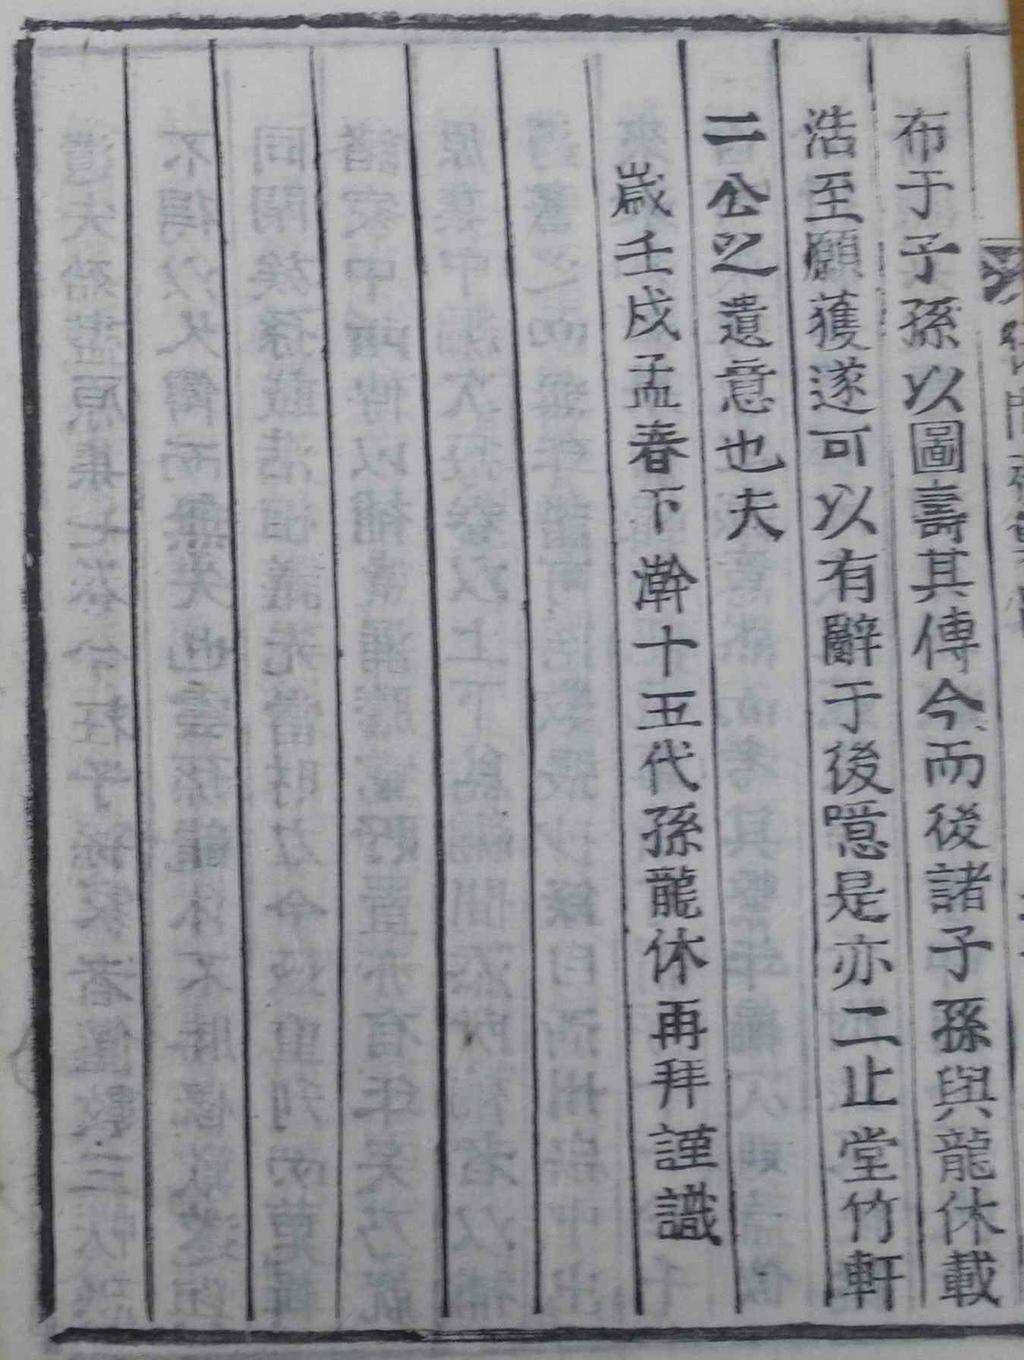 布于子孫以圖壽其傳今而後諸子孫與龍休載
浩至願獲遂可以有辭于後噫是亦二止堂竹軒
二公之遺意也夫
歲壬戌孟春下澣十五代孫龍休再拜謹識